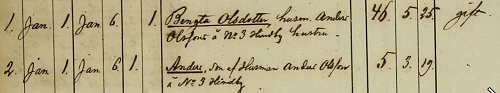 1. Jan. 1. Jan. 6. 1. Bengta Olsdotter, husm. Anders 46. 5. 25. gift.
Olssons å No 3 Hindby hustru.
2. Jan. 1. Jan. 6. 1. Anders, son af Husman Anders Olsson 5. 3. 19.
å No 3 Hindby